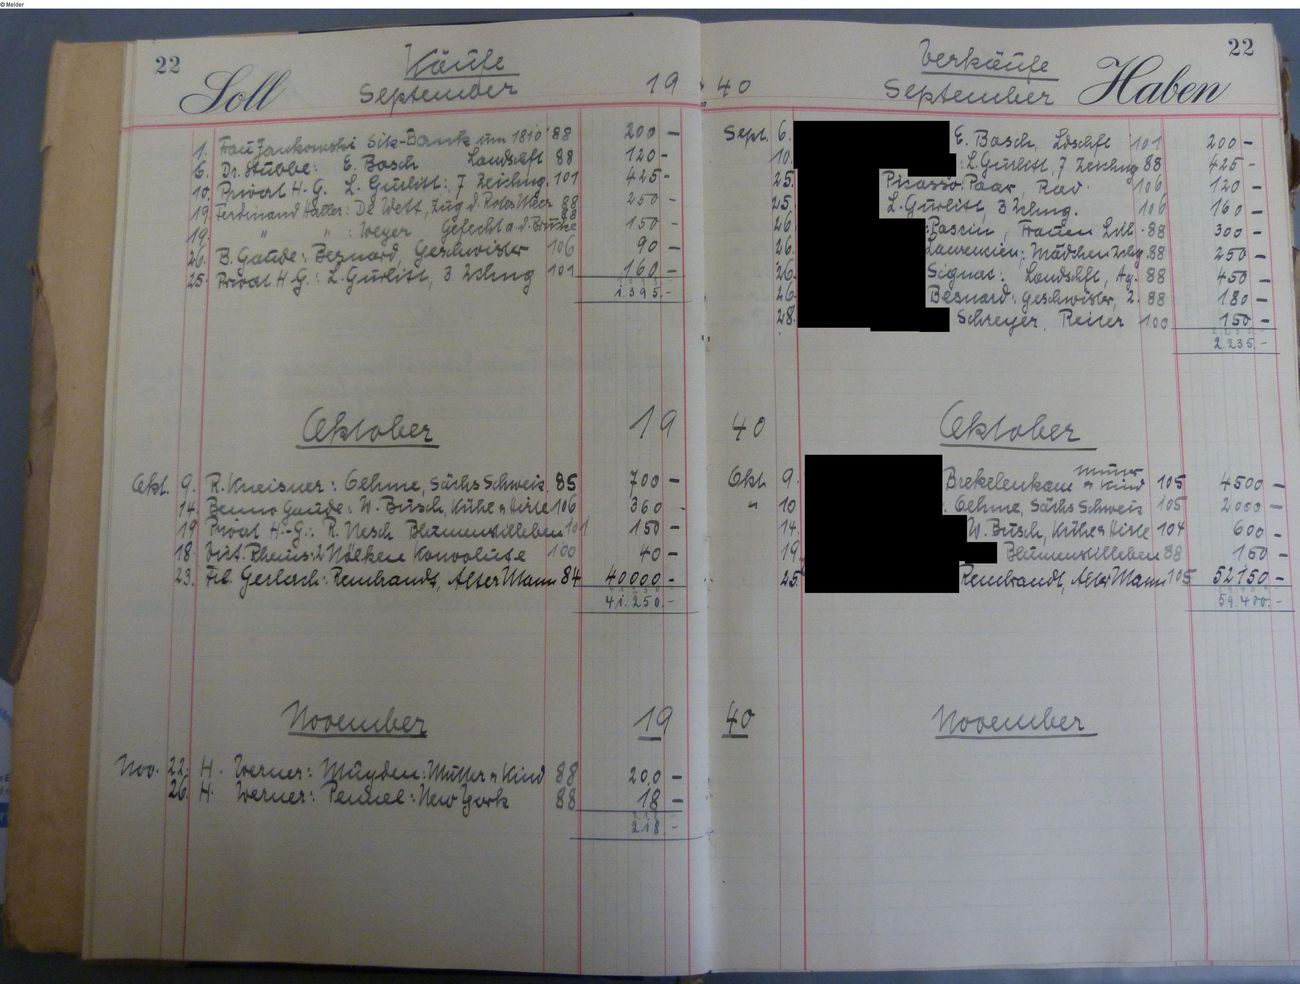 © Melder
22
Soll
Käufe
September 19
1. Frau Jankowski Sitz-Bank um 1810 88 200 –
6. Dr. Stubbe: E. Bosch Landschft 88 120 –
10. Privat H-G. L. Gurlitt: 7 Zeichng. 101 425 –
19. Ferdinand Hatter: De Wett, Zug d. Rotes Meer 88 250 –
19. " " : Weyer Gefecht a.d. Brücke 88 150 –
26. B. Gaude: Besnard, Geschwister 106 90 –
25. Privat H-G: L. Gurlitt, 3 Zchng 101 160 –
1.395.-
Oktober 19
Okt. 9. R. Kneisner: Oehme, Sächs Schweiz 85 700 –
14. Benno Gaude: W. Busch, Kühe u Hirte 106 360 –
19 Privat H-G.: R. Nesch Blumenstilleben 101 150 –
18. Vict. Rheins: 2 Nölken Konvolute 100 40 –
23. Frl. Gerlach: Rembrandt, Alter Mann 84 40000 –
41.250.-
November 19
Nov. 22. H. Werner: Muyden: Mutter u Kind 88 200 –
26. H. Werner: Pennel: New York 88 18 –
218.-
22
Verkäufe
40 September Haben
Sept. 6. E. Bosch, Ldschft 101 200 –
10. : L. Gurlitt, 7 Zeichng 88 425 –
25. Picasso: Paar, Rad. 106 120 –
25. L. Gurlitt, 3 Zchng. 106 160 –
26 : Pascin, Frauen Lith. 88 300 –
26. Laurencien: Mädchen Zchg. 88 250 –
26 Signac: Landschft, Aq. 88 450 –
26 Besnard: Geschwister, 2. 88 180 –
28. Schreyer, Reiter 100 150 –
2.235.-
40 Oktober
Okt. 9. Brekelenkam Mutter u Kind 105 4500 –
" 10 : Oehme, Sächs Schweiz 105 2000 –
14. W. Busch, Kühe u Hirte 104 600 –
19. Blumenstilleben 88 150 –
25. Rembrandt, Alter Mann 105 52150 –
59.400.-
40 November